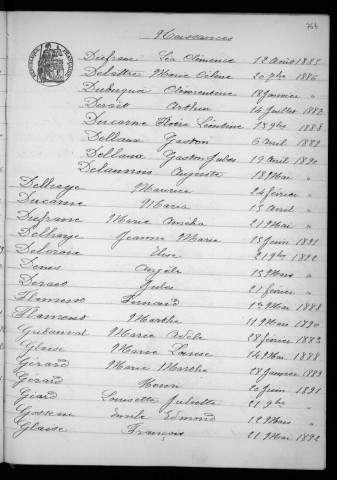 764
Naissances
Dufrane Léa Clémence 12 Août 1885
Delattre Marie Céline 20 9bre 1886
Dubuquoi Clémentine 18 Janvier "
Derait Arthur 14 Juillet 1882
Ducarne Léontine 15 9bre 1888
Dellaux Gaston 6 Avril 1889
Dellaux Gaston Jules 19 Avril 1890
Delaunois Auguste 18 Mai "
Delhaye Maurice 24 février "
Ducarne Maria 15 Avril "
Dufrane Marie 21 Mai "
Delhaye Jeanne Marie 15 Juin 1891
Delcroix Elise 21 9bre 1892
Denis Angèle 15 Mars "
Deraet Jules 21 février "
Fernand 1er Mai 1888
Marthe 11 Mars 1890
Marie Adèle 28 février 1883
Glaise Marie Louise 14 Mai 1888
Gérard Marie Marthe 28 Janvier 1889
Gérard Henri 20 Juin 1891
Giard Louisette Juliette 21 9bre "
Emile Edmond 12 Mars "
Glaise François 21 Mai 1892